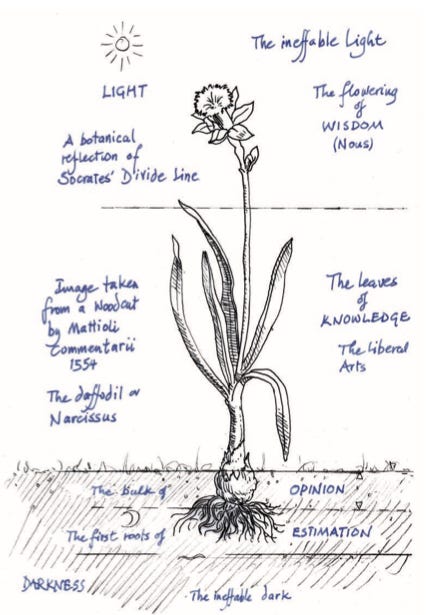 The ineffable Light
LIGHT
The flowering
of
WISDOM
(Nous)
A botanical
reflection of
Socrates' Divide Line
Image taken
from a Woodcut
by Mattioli
Commentarii
1554
The daffodil or
Narcissus
The leaves
of
KNOWLEDGE
The Liberal
Arts
The bulk of OPINION
The first roots of ESTIMATION
DARKNESS
The ineffable dark